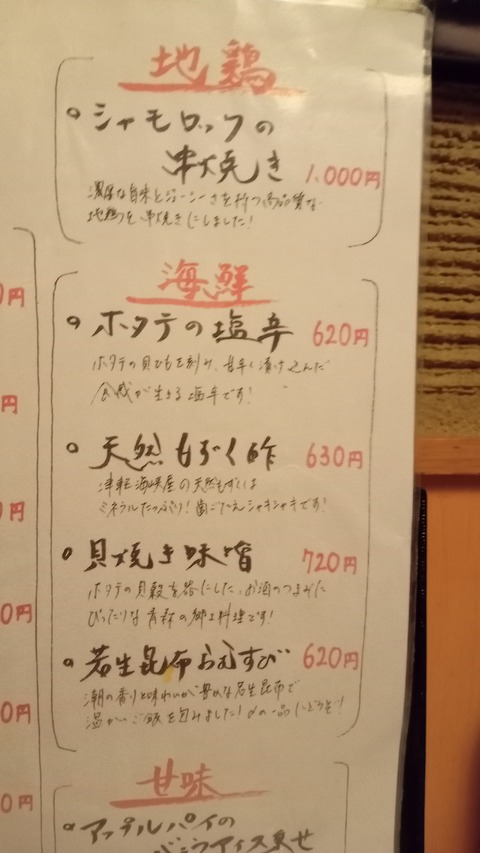 地鶏
シャモロックの
串焼き 1,000円
濃厚な旨味とジューシーさを持つ高品質な
地鶏を串焼きにしました!
海鮮
ホタテの塩辛 620円
ホタテの貝ひもを刻み、甘辛く漬け込んだ
食感が生きる塩辛です!
天然もずく酢 630円
津軽海峡産の天然もずくは
ミネラルたっぷり!歯ごたえシャキシャキです!
貝焼き味噌 720円
ホタテの貝殻を器にした、お酒のつまみに
ぴったりな青森の郷土料理です!
若生昆布おむすび 620円
潮の香りと味わいが豊かな若生昆布で
温かいご飯を包みました!〆の一品にどうぞ!
甘味
アップルパイの
バニラアイス乗せ
0円
円
0円
0円
0円
0円